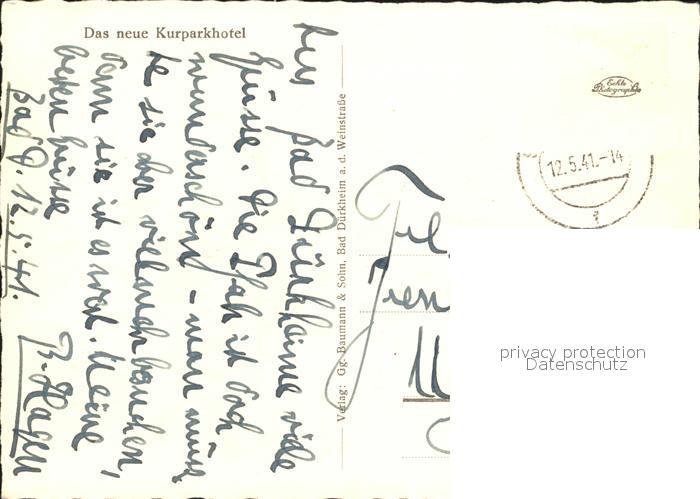 Das neue Kurparkhotel
Aus Bad Dürkheim viele
Grüsse. Die Pfalz ist doch
wunderschön – man muss
sie
denn sie ist es wert. Meine
besten Grüsse
Bad D. 12.5.41. B. Hagen
Verlag: Gg. Baumann & Sohn, Bad Dürkheim a. d. Weinstraße
Echte
Photographie
12.5.41.-14
privacy protection
Datenschutz